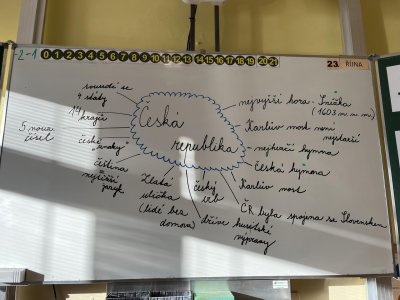 -2-1 0 1 2 3 4 5 6 7 8 9 10 11 12 13 14 15 16 17 18 19 20 21
23. ŘÍJNA
Česká
republika
sousedí se
4 státy
14 krajů
5 nova
čísel
české
znaky
čeština
nejtěžší
jazyk
Zlatá
ulička
(lidé bez
domova)
český
lev
dříve husitské
výpravy
ČR byla spojena se Slovenskem
Karlův most
česká hymna
nejhezčí hymna
Karlův most není
nejstarší
nejvyšší hora - Sněžka
(1603 m. n. m.)